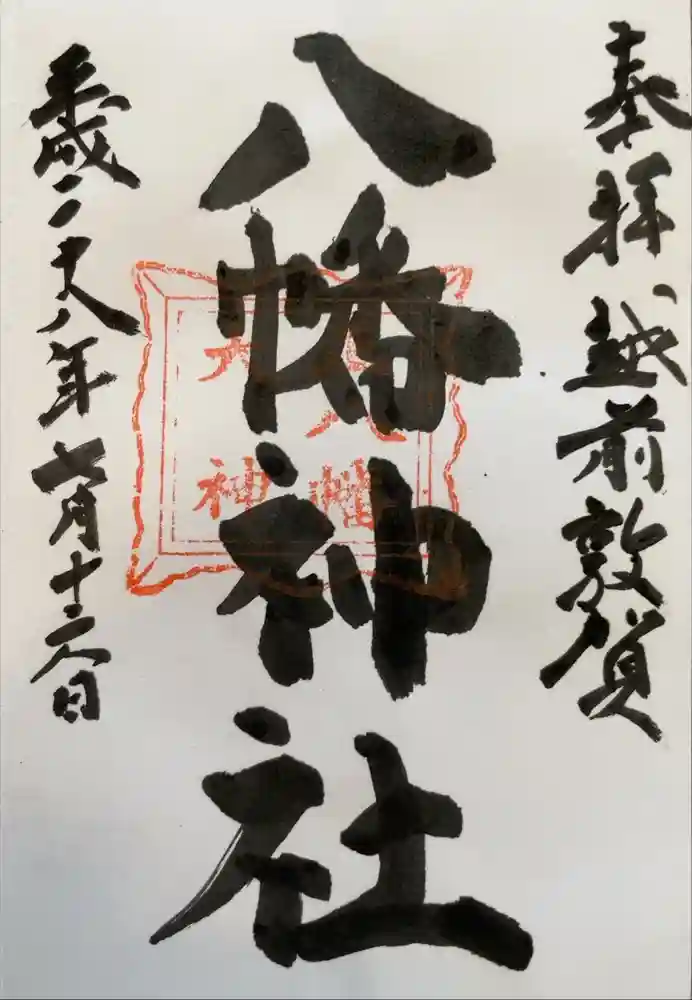 奉拝 越前敦賀
八幡神社
八幡
大神
平成二十八年七月十六日